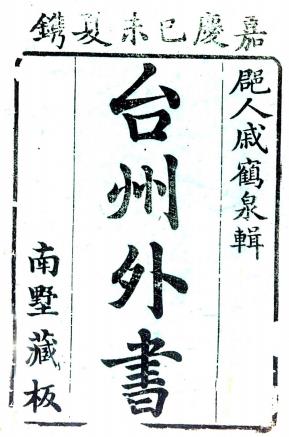 嘉慶己未夏鐫
郡人戚鶴泉輯
台州外書
南墅藏板